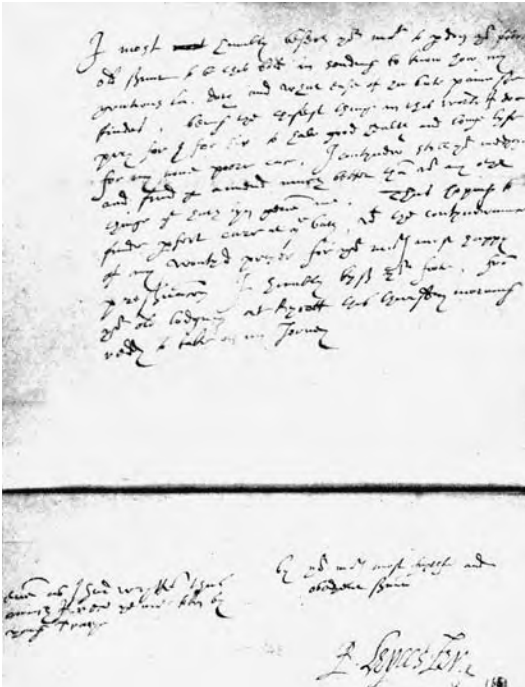 I most humbly besech yor maty to pdon yor poore
old servant to be thus bold in sending to know how my
gratious lady doth and what ease of her late paine she
findes, being the chefest thinge in this world I doe
pray for & for hir to have good health and long lyfe
for my none poore case, I contynew still yor medycyn
and fynd it amend much better than wth any other
thinge that hath byn geven me. Thus hoping to
finde pfect cure at the bath, wth the contynewance
of my wonted prayer for yor maty most happy
preservacion I humbly kyss yor foote, from
yor old lodging at Rycott this thursday morning
reddy to take on my Jorney
By yor maty most faythfull and
obedyent servant
R. Leycester
even as I had wrytten thus
much I receved yor mats token by
yonge Tracye